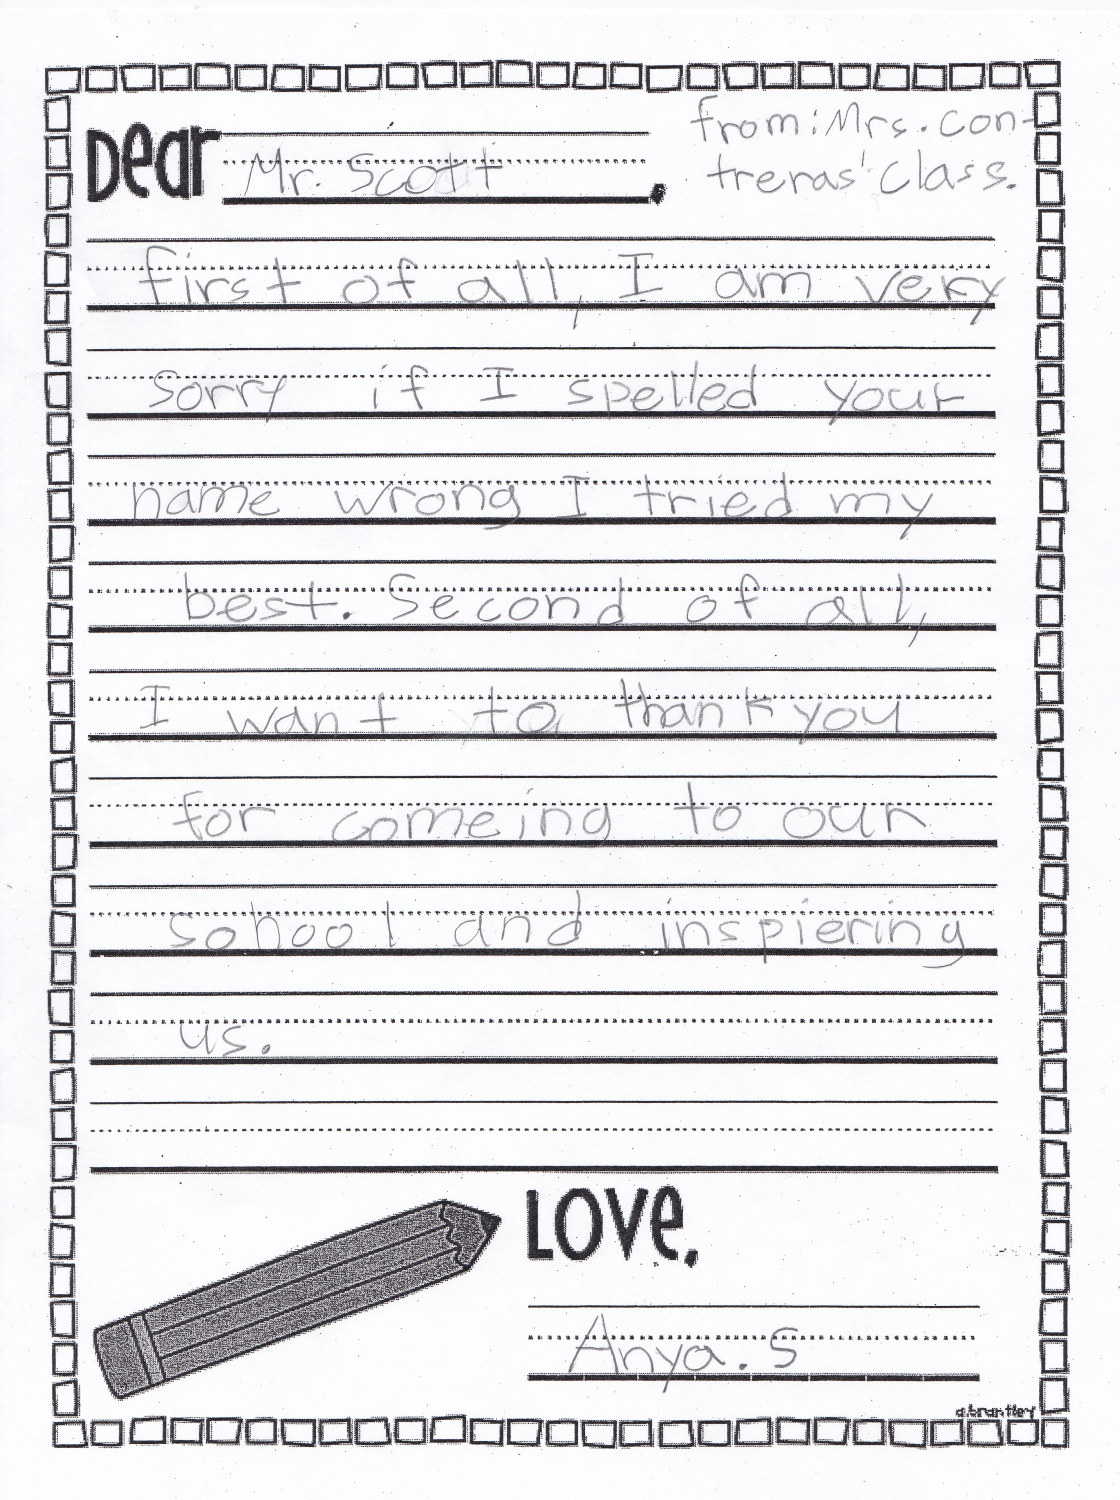 from: Mrs. Con-
treras' class.
Dear Mr. Scott,
first of all, I am very
sorry if I spelled your
name wrong I tried my
best. Second of all,
I want to thank you
for comeing to our
school and inspiering
us.
Love,
Anya. S
a.brantley